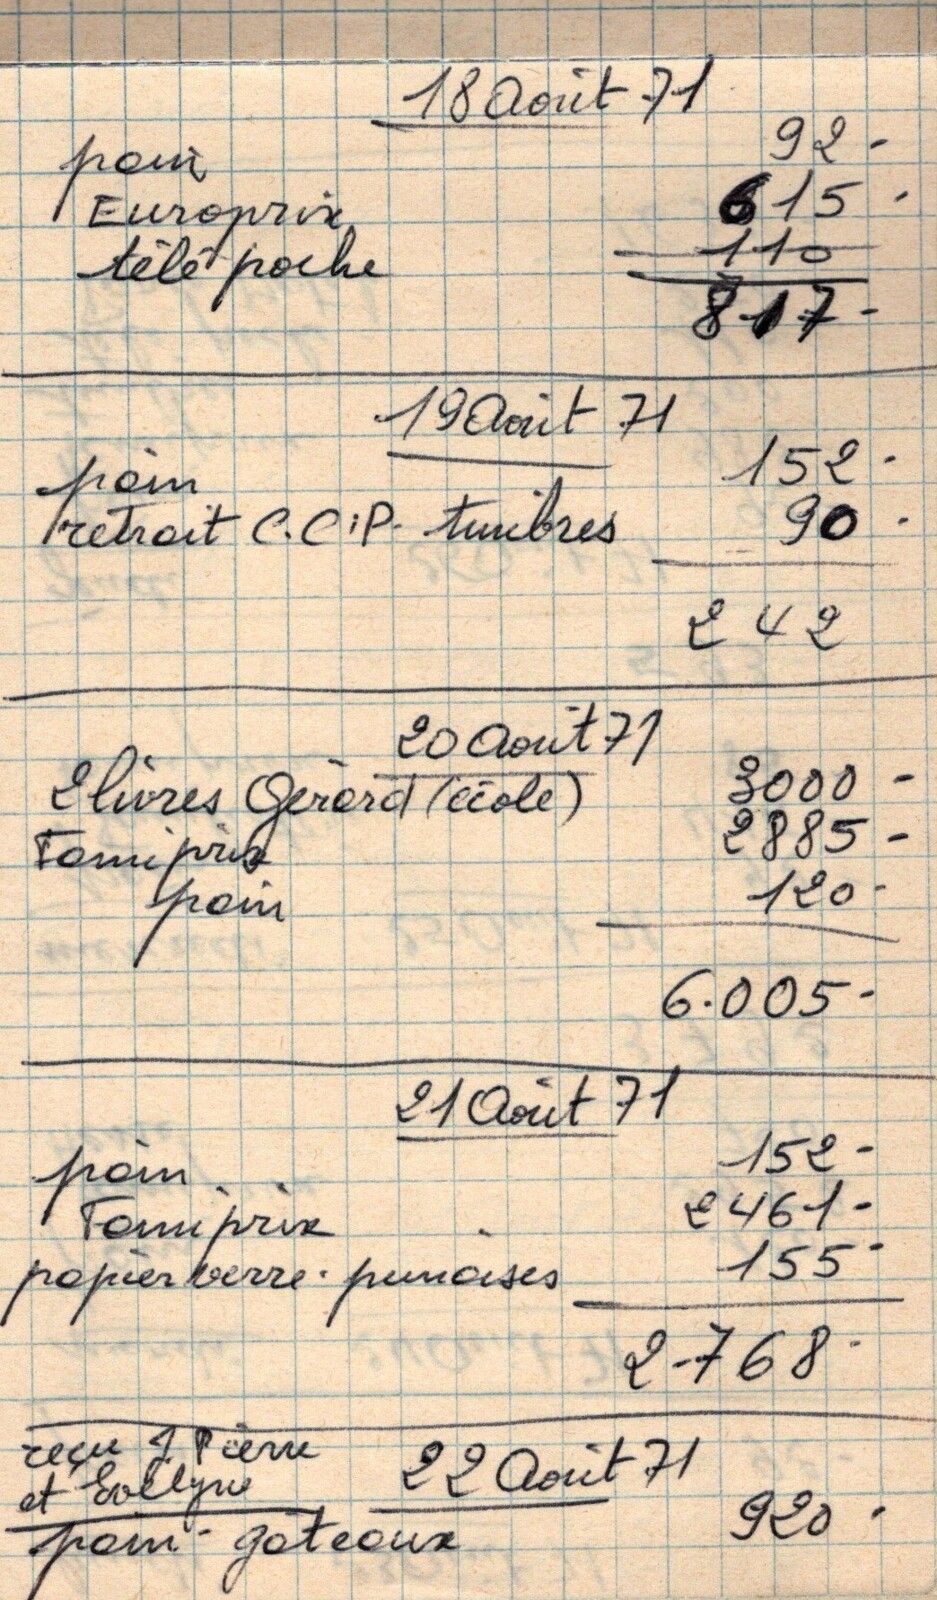 18 Août 71
pain 92-
Europrix 615-
télé poche 110
817-
19 Août 71
pain 152-
retrait C.C.P. timbres 90-
242
20 Août 71
2 livres Gérard (école) 3000-
Famiprix 2885-
pain 120-
6.005-
21 Août 71
pain 152-
Famiprix 2461-
papier verre. punaises 155-
2.768-
reçu J. Pierre
et Evelyne 22 Août 71
pain - gâteaux 920-